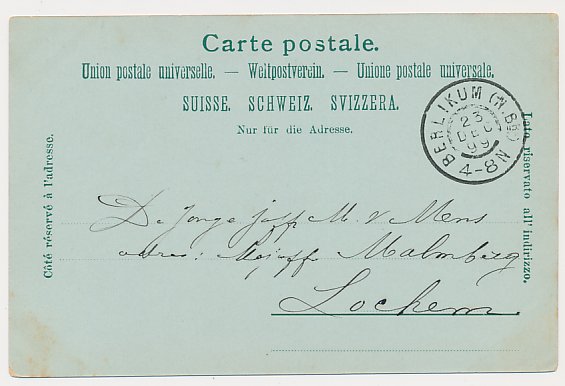 Carte postale.
Union postale universelle. — Weltpostverein. — Unione postale universale.
SUISSE. SCHWEIZ. SVIZZERA.
Nur für die Adresse.
Côté réservé à l'adresse.
Lato riservato all' indirizzo.
BERLIKUM (N. Br.)
23
DEC
99
4-8N
De Jonge Joff M. v Mens
adres: Mejuff Malmberg
Lochem.